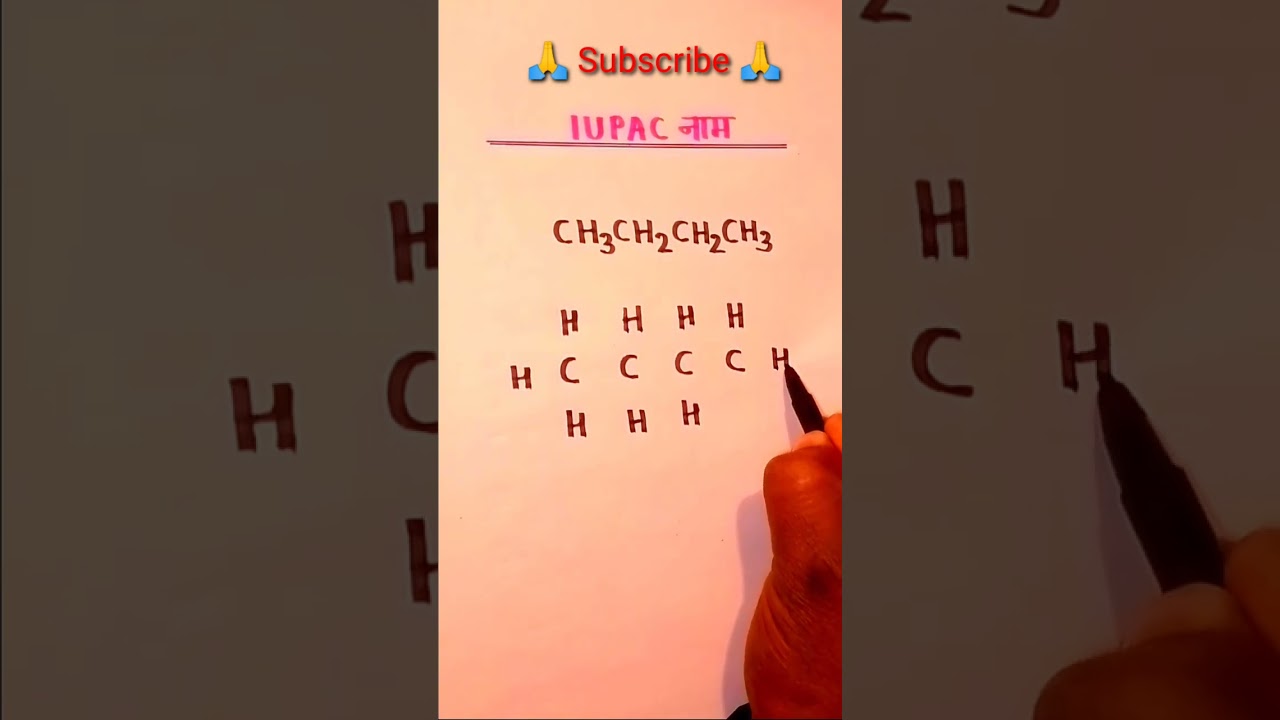 🙏 Subscribe 🙏
IUPAC नाम
CH₃CH₂CH₂CH₃
H H H H
H C C C C H
H H H